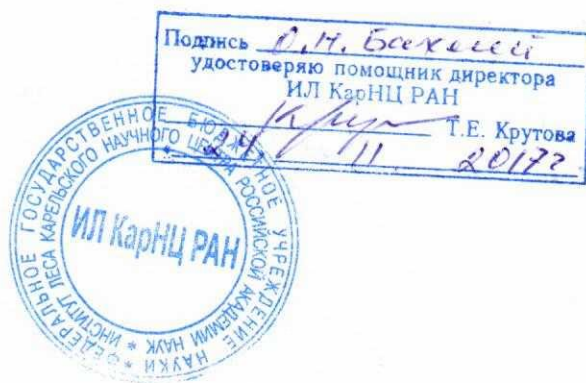 Подпись О.Н. Бахмет
удостоверяю помощник директора
ИЛ КарНЦ РАН
Т.Е. Крутова
24 11 2017г
ФЕДЕРАЛЬНОЕ ГОСУДАРСТВЕННОЕ БЮДЖЕТНОЕ УЧРЕЖДЕНИЕ НАУКИ *
ИНСТИТУТ ЛЕСА КАРЕЛЬСКОГО НАУЧНОГО ЦЕНТРА РОССИЙСКОЙ АКАДЕМИИ НАУК *
ИЛ КарНЦ РАН